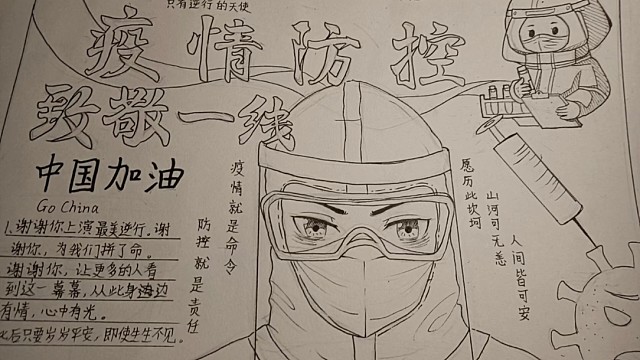 只有逆行的天使
疫情防控
致敬一线
中国加油
Go China
1.谢谢你上演最美逆行。谢
谢你，为我们拼了命。
谢谢你，让更多的人看
到这一幕幕，从此身边
有情，心中有光。
此后只要岁岁平安，即使生生不见。
疫情就是命令
防控就是责任
愿历此坎坷
山河可无恙
人间皆可安